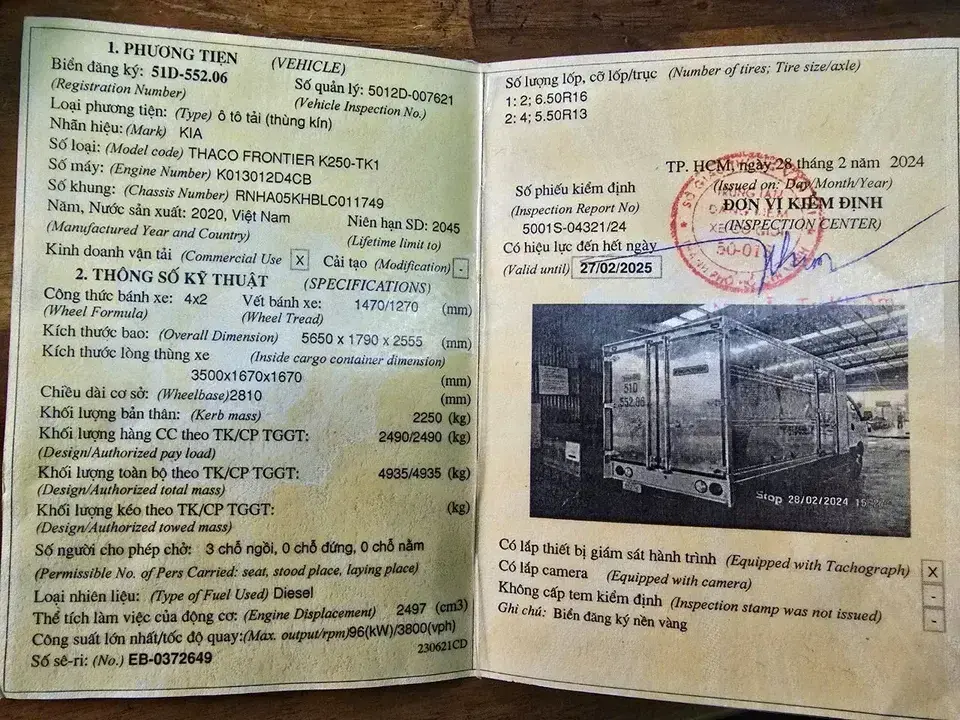 1. PHƯƠNG TIỆN (VEHICLE)
Biển đăng ký: 51D-552.06 Số quản lý: 5012D-007621
(Registration Number) (Vehicle Inspection No.)
Loại phương tiện: (Type) ô tô tải (thùng kín)
Nhãn hiệu: (Mark) KIA
Số loại: (Model code) THACO FRONTIER K250-TK1
Số máy: (Engine Number) K013012D4CB
Số khung: (Chassis Number) RNHA05KHBLC011749
Năm, Nước sản xuất: 2020, Việt Nam Niên hạn SD: 2045
(Manufactured Year and Country) (Lifetime limit to)
Kinh doanh vận tải (Commercial Use X Cải tạo (Modification) -
2. THÔNG SỐ KỸ THUẬT (SPECIFICATIONS)
Công thức bánh xe: 4x2 Vết bánh xe: 1470/1270 (mm)
(Wheel Formula) (Wheel Tread)
Kích thước bao: (Overall Dimension) 5650 x 1790 x 2555 (mm)
Kích thước lòng thùng xe (Inside cargo container dimension)
3500x1670x1670 (mm)
Chiều dài cơ sở: (Wheelbase)2810 (mm)
Khối lượng bản thân: (Kerb mass) 2250 (kg)
Khối lượng hàng CC theo TK/CP TGGT: 2490/2490 (kg)
(Design/Authorized pay load)
Khối lượng toàn bộ theo TK/CP TGGT: 4935/4935 (kg)
(Design/Authorized total mass)
Khối lượng kéo theo TK/CP TGGT: (kg)
(Design/Authorized towed mass)
Số người cho phép chở: 3 chỗ ngồi, 0 chỗ đứng, 0 chỗ nằm
(Permissible No. of Pers Carried: seat, stood place, laying place)
Loại nhiên liệu: (Type of Fuel Used) Diesel
Thể tích làm việc của động cơ: (Engine Displacement) 2497 (cm3)
Công suất lớn nhất/tốc độ quay:(Max. output/rpm)96(kW)/3800(vph)
230621CD
Số sê-ri: (No.) EB-0372649
Số lượng lốp, cỡ lốp/trục (Number of tires; Tire size/axle)
1: 2; 6.50R16
2: 4; 5.50R13
TP. HCM, ngày 28 tháng 2 năm 2024
(Issued on: Day/Month/Year)
Số phiếu kiểm định ĐƠN VỊ KIỂM ĐỊNH
(Inspection Report No) (INSPECTION CENTER)
5001S-04321/24
Có hiệu lực đến hết ngày
(Valid until) 27/02/2025
TRUNG TÂM
ĐĂNG KIỂM
XE CƠ GIỚI
50-01
51D
552.06
Stop 28/02/2024
Có lắp thiết bị giám sát hành trình (Equipped with Tachograph) X
Có lắp camera (Equipped with camera) -
Không cấp tem kiểm định (Inspection stamp was not issued) -
Ghi chú: Biển đăng ký nền vàng